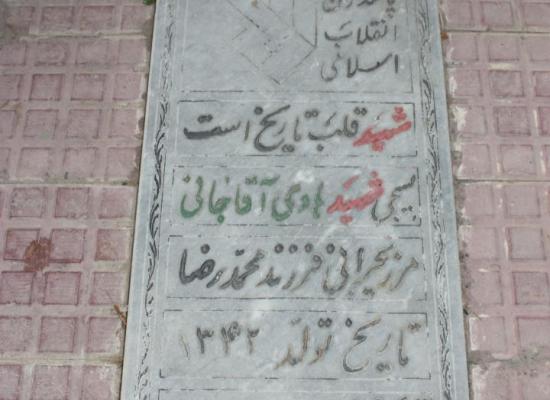 پاسداران
انقلاب
اسلامی
شهید قلب تاریخ است
بسیجی شهید هادی آقاخانی
مرزیحرانی فرزند محمدرضا
تاریخ تولد ۱۳۴۲